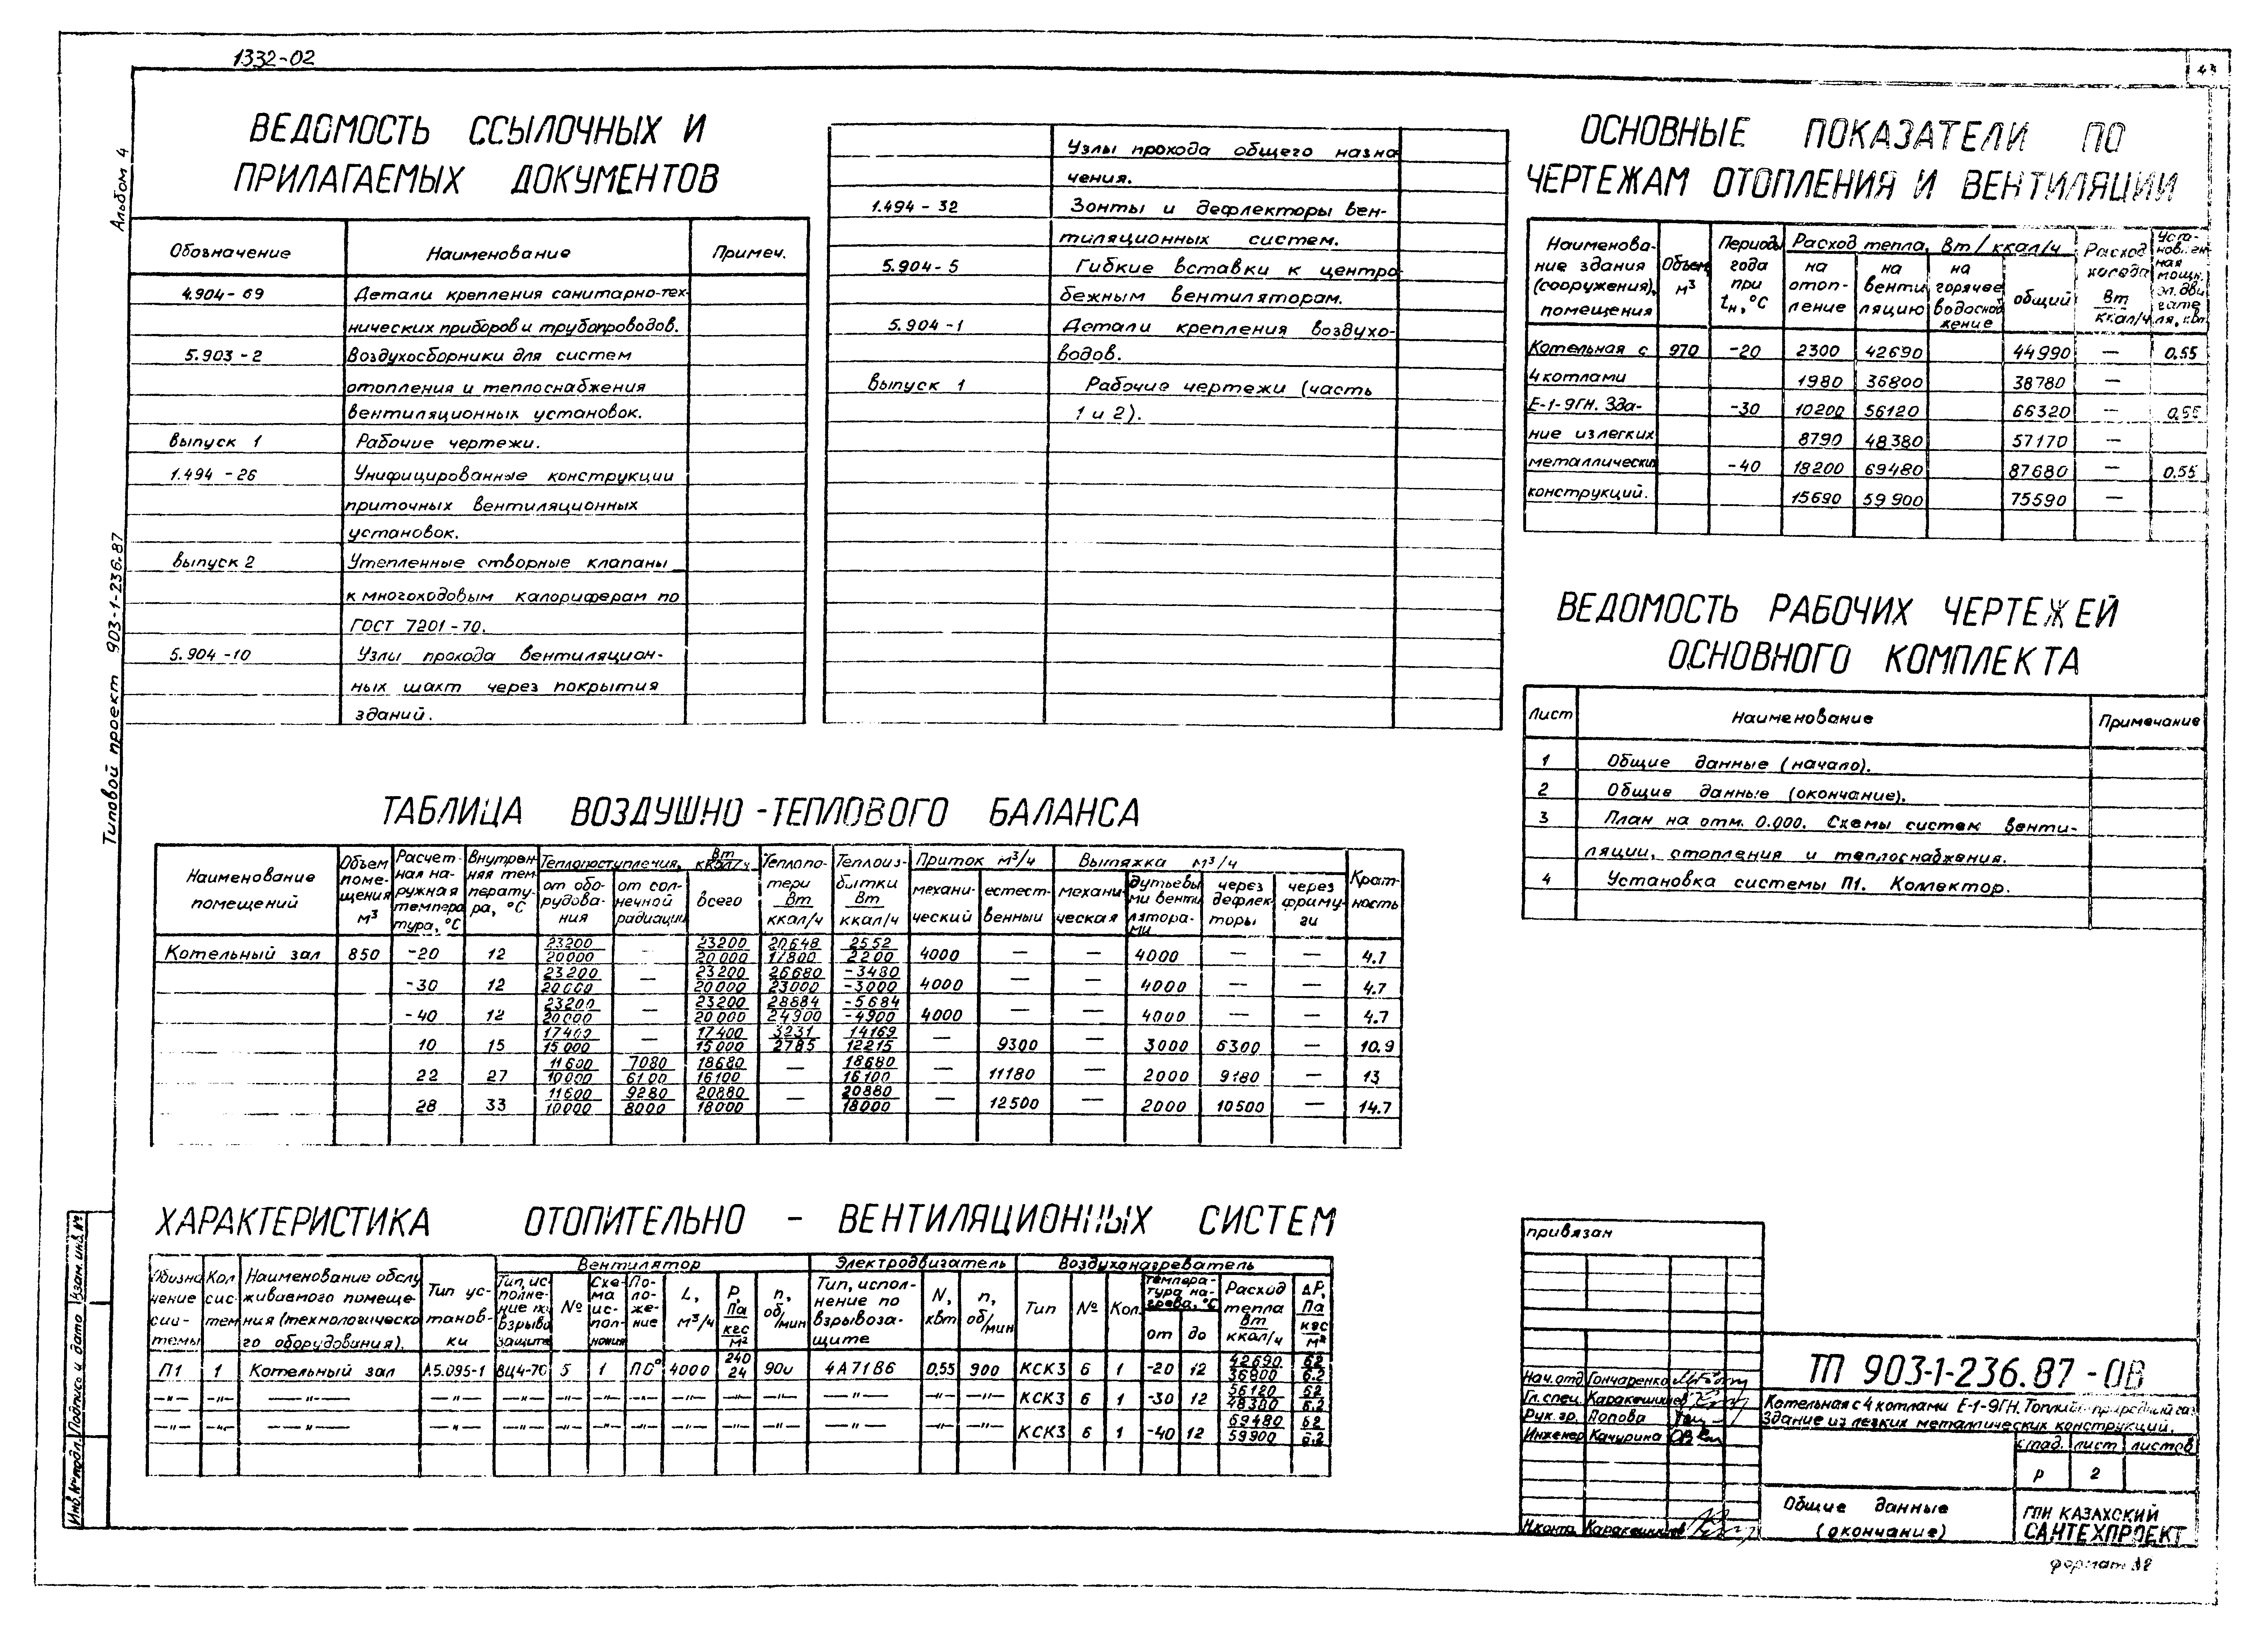 1332-02
Альбом 4
Типовой проект 903-1-236.87
ВЕДОМОСТЬ ССЫЛОЧНЫХ И
ПРИЛАГАЕМЫХ ДОКУМЕНТОВ
Обозначение Наименование Примеч.
4.904-69 Детали крепления санитарно-тех-
нических приборов и трубопроводов.
5.903-2 Воздухосборники для систем
отопления и теплоснабжения
вентиляционных установок.
выпуск 1 Рабочие чертежи.
1.494-26 Унифицированные конструкции
приточных вентиляционных
установок.
выпуск 2 Утепленные створные клапаны
к многоходовым калориферам по
ГОСТ 7201-70.
5.904-10 Узлы прохода вентиляцион-
ных шахт через покрытия
зданий.
Узлы прохода общего назна-
чения.
1.494-32 Зонты и дефлекторы вен-
тиляционных систем.
5.904-5 Гибкие вставки к центро
бежным вентиляторам.
5.904-1 Детали крепления воздухо-
водов.
выпуск 1 Рабочие чертежи (часть
1 и 2).
ОСНОВНЫЕ ПОКАЗАТЕЛИ ПО
ЧЕРТЕЖАМ ОТОПЛЕНИЯ И ВЕНТИЛЯЦИИ
Наименова-
ние здания
(сооружения),
помещения
Объем
м³
Периоды
года
при
tн, °С
Расход тепла, Вт/ккал/ч
на
отоп-
ление
на
венти
ляцию
на
горячее
водоснаб
жение
общий
Расход
холода
Вт
ккал/ч
Уста-
новлен
ная
мощн.
эл. дви
гате
ля, кВт
Котельная с 970 -20 2300 42690 44990 — 0.55
4 котлами 1980 36800 38780 —
Е-1-9ГН. Зда- -30 10200 56120 66320 — 0.55
ние из легких 8790 48380 57170 —
металлических -40 18200 69480 87680 — 0.55
конструкций. 15690 59900 75590 —
ВЕДОМОСТЬ РАБОЧИХ ЧЕРТЕЖЕЙ
ОСНОВНОГО КОМПЛЕКТА
Лист Наименование Примечание
1 Общие данные (начало).
2 Общие данные (окончание).
3 План на отм. 0.000. Схемы систем венти-
ляции, отопления и теплоснабжения.
4 Установка системы П1. Коллектор.
ТАБЛИЦА ВОЗДУШНО-ТЕПЛОВОГО БАЛАНСА
Наименование
помещений
Объем
поме-
щения
м³
Расчет-
ная на-
ружная
темпера
тура, °С
Внутрен
няя тем
перату-
ра, °С
Теплопоступления, Вт ккал/ч
от обо-
рудова-
ния
от сол-
нечной
радиации
всего
Теплопо-
тери
Вт
ккал/ч
Теплоиз-
бытки
Вт
ккал/ч
Приток м³/ч
механи-
ческий
естест-
венный
Вытяжка м³/ч
механи-
ческая
дутьевы
ми венти
лятора-
ми
через
дефлек
торы
через
фраму-
ги
Крат-
ность
Котельный зал 850 -20 12 23200/20000 — 23200/20000 20648/17800 2552/2200 4000 — — 4000 — — 4.7
-30 12 23200/20000 — 23200/20000 26680/23000 -3480/-3000 4000 — — 4000 — — 4.7
-40 12 23200/20000 — 23200/20000 28884/24900 -5684/-4900 4000 — — 4000 — — 4.7
10 15 17400/15000 — 17400/15000 3231/2785 14169/12215 — 9300 — 3000 6300 — 10.9
22 27 11600/10000 7080/6100 18680/16100 — 18680/16100 — 11180 — 2000 9180 — 13
28 33 11600/10000 9280/8000 20880/18000 — 20880/18000 — 12500 — 2000 10500 — 14.7
ХАРАКТЕРИСТИКА ОТОПИТЕЛЬНО - ВЕНТИЛЯЦИОННЫХ СИСТЕМ
Обозна
чение
сис-
темы
Кол
сис-
тем
Наименование обслу
живаемого помеще-
ния (технологическо
го оборудования).
Тип ус-
танов-
ки
Вентилятор
Тип, ис-
полне-
ние по
взрыво
защите
№
Схе-
ма
ис-
пол-
нения
По-
ло-
же-
ние
L,
м³/ч
Р,
Па
кгс
м²
n,
об/мин
Электродвигатель
Тип, испол-
нение по
взрывоза-
щите
N,
кВт
n,
об/мин
Воздухонагреватель
Тип
№
Кол.
темпера-
тура на-
грева, °С
от до
Расход
тепла
Вт
ккал/ч
ΔР,
Па
кгс
м²
П1 1 Котельный зал А5.095-1 ВЦ4-70 5 1 П0° 4000 240/24 900 4А71В6 0.55 900 КСК3 6 1 -20 12 42690/36800 62/6.2
—"— —"— —"— —"— —"— —"— —"— —"— —"— —"— —"— —"— —"— —"— КСК3 6 1 -30 12 56120/48380 62/6.2
—"— —"— —"— —"— —"— —"— —"— —"— —"— —"— —"— —"— —"— —"— КСК3 6 1 -40 12 69480/59900 62/6.2
привязан
ТП 903-1-236.87-ОВ
Нач. отд Гончаренко
Гл. спец. Каракешишев
Рук. гр. Попова
Инженер Качурина
Н.конта Каракешишев
Котельная с 4 котлами Е-1-9ГН. Топливо-природный газ
Здание из легких металлических конструкций.
стад. лист листов
Р 2
Общие данные
(окончание)
ГПИ КАЗАХСКИЙ
САНТЕХПРОЕКТ
формат А2
Инв. № подл. Подпись и дата Взам. инв. №